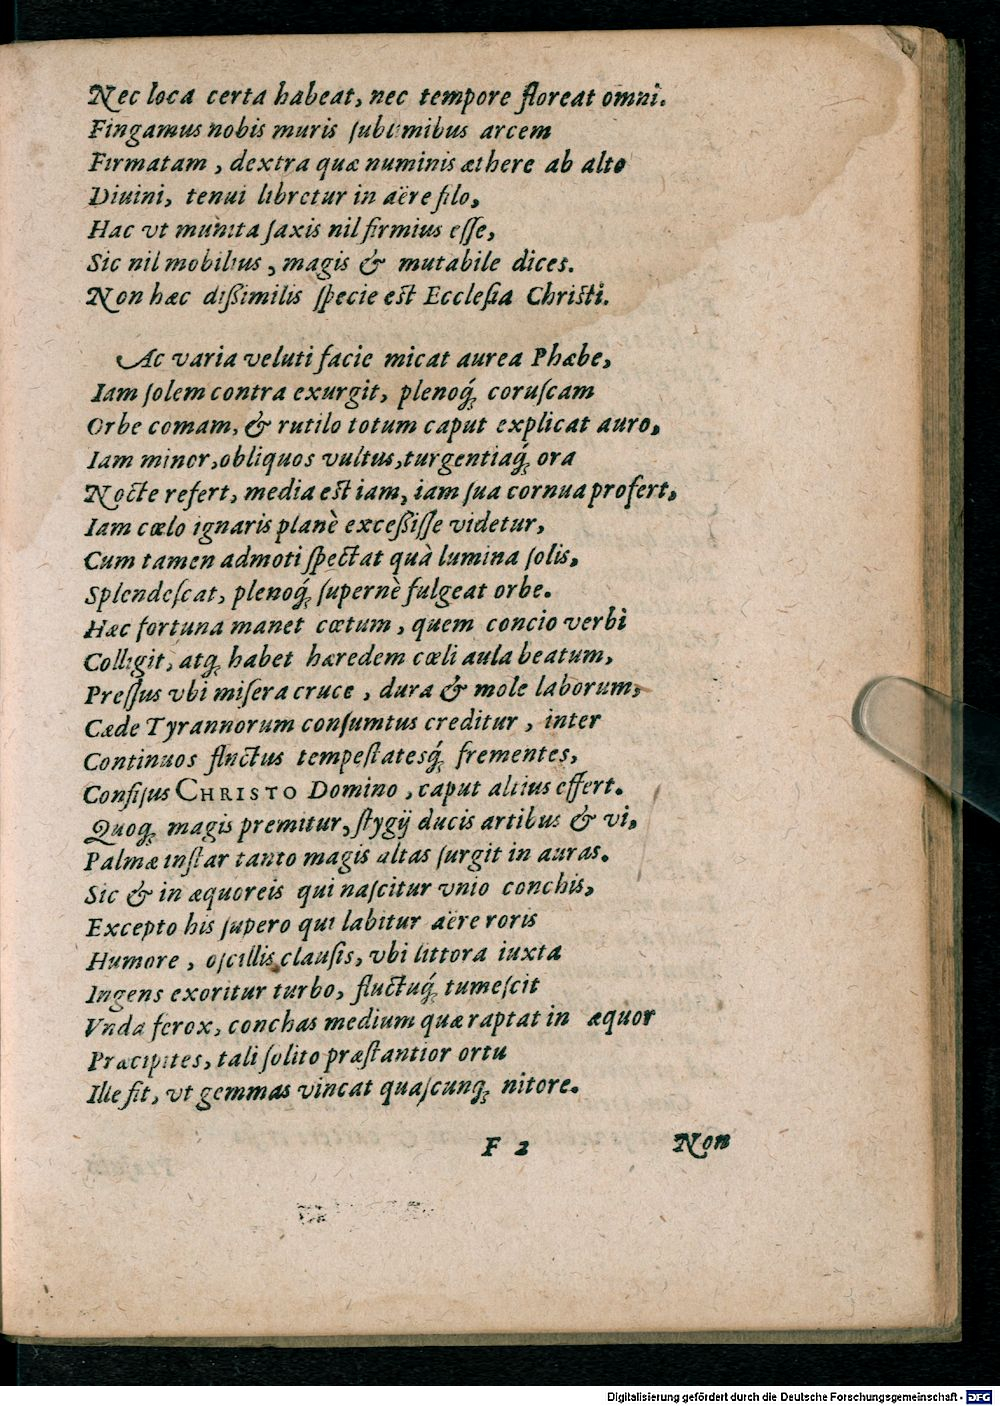 Nec loca certa habeat, nec tempore floreat omni.
Fingamus nobis muris ſublimibus arcem
Firmatam, dextra quæ numinis æthere ab alto
Diuini, tenui libretur in aëre filo,
Hac vt munita ſaxis nil firmius eſſe,
Sic nil mobilius, magis & mutabile dices.
Non hæc dißimilis ſpecie est Eccleſia Christi.
Ac varia veluti facie micat aurea Phœbe,
Iam ſolem contra exurgit, plenoq́ꝫ coruſcam
Orbe comam, & rutilo totum caput explicat auro,
Iam minor, obliquos vultus, turgentiaq́ꝫ ora
Nocte refert, media est iam, iam ſua cornua profert,
Iam cœlo ignaris planè exceßiſſe videtur,
Cum tamen admoti ſpectat quà lumina ſolis,
Splendeſcat, plenoq́ꝫ ſupernè fulgeat orbe.
Hæc fortuna manet cœtum, quem concio verbi
Colligit, atqꝫ habet hæredem cœli aula beatum,
Preſſus vbi miſera cruce, dura & mole laborum,
Cæde Tyrannorum conſumtus creditur, inter
Continuos fluctus tempeſtatesq́ꝫ frementes,
Confiſus CHRISTO Domino, caput altius effert.
Quoqꝫ magis premitur, ſtygij ducis artibus & vi,
Palmæ inſtar tanto magis altas ſurgit in auras.
Sic & in æquoreis qui naſcitur vnio conchis,
Excepto his ſupero qui labitur aëre roris
Humore, oſcillis clauſis, vbi littora iuxta
Ingens exoritur turbo, fluctuq́ꝫ tumeſcit
Vnda ferox, conchas medium quæ raptat in æquor
Præcipites, tali ſolito præſtantior ortu
Ille fit, vt gemmas vincat quaſcunqꝫ nitore.
F 2 Non
Digitalisierung gefördert durch die Deutsche Forschungsgemeinschaft - DFG